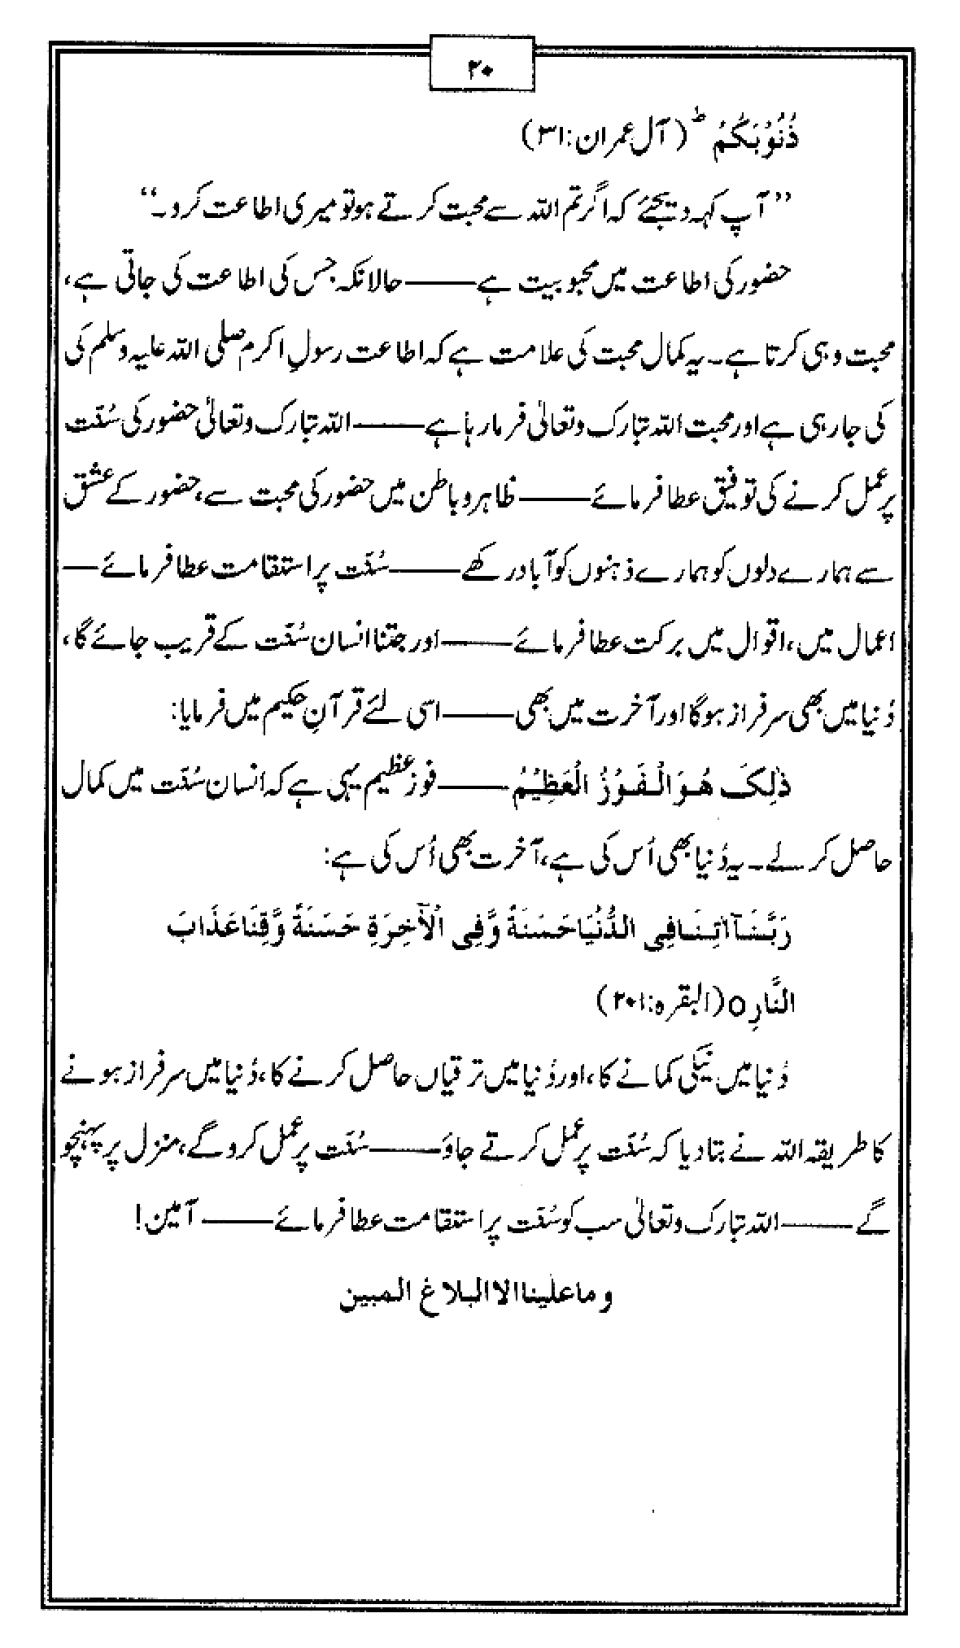 ۲۰
ذُنُوْبَکُمْ ؕ (آل عمران:۳۱)
”آپ کہہ دیجئے کہ اگر تم اللہ سے محبت کرتے ہو تو میری اطاعت کرو۔“
حضور کی اطاعت میں محبوبیت ہے——حالانکہ جس کی اطاعت کی جاتی ہے،
محبت وہی کرتا ہے۔ یہ کمال محبت کی علامت ہے کہ اطاعت رسولِ اکرم صلی اللہ علیہ وسلم کی
کی جا رہی ہے اور محبت اللہ تبارک وتعالیٰ فرما رہا ہے——اللہ تبارک وتعالیٰ حضور کی سُنّت
پر عمل کرنے کی توفیق عطا فرمائے——ظاہر و باطن میں حضور کی محبت سے، حضور کے عشق
سے ہمارے دلوں کو ہمارے ذہنوں کو آباد رکھے——سُنّت پر استقامت عطا فرمائے—
اعمال میں، اقوال میں برکت عطا فرمائے——اور جتنا انسان سُنّت کے قریب جائے گا،
دُنیا میں بھی سرفراز ہوگا اور آخرت میں بھی——اسی لئے قرآنِ حکیم میں فرمایا:
ذٰلِکَ ھُوَ الْفَوْزُ الْعَظِیْمُ——فوزِ عظیم یہی ہے کہ انسان سُنّت میں کمال
حاصل کرلے۔ یہ دُنیا بھی اُس کی ہے، آخرت بھی اُس کی ہے:
رَبَّنَآ اٰتِنَا فِی الدُّنْیَا حَسَنَةً وَّفِی الْاٰخِرَةِ حَسَنَةً وَّقِنَا عَذَابَ
النَّارِ o (البقرہ:۲۰۱)
دُنیا میں نیکی کمانے کا، اور دُنیا میں ترقیاں حاصل کرنے کا، دُنیا میں سرفراز ہونے
کا طریقہ اللہ نے بتا دیا کہ سُنّت پر عمل کرتے جاؤ——سُنّت پر عمل کرو گے، منزل پر پہنچو
گے——اللہ تبارک وتعالیٰ سب کو سُنّت پر استقامت عطا فرمائے——آمین!
وما علینا الا البلاغ المبین